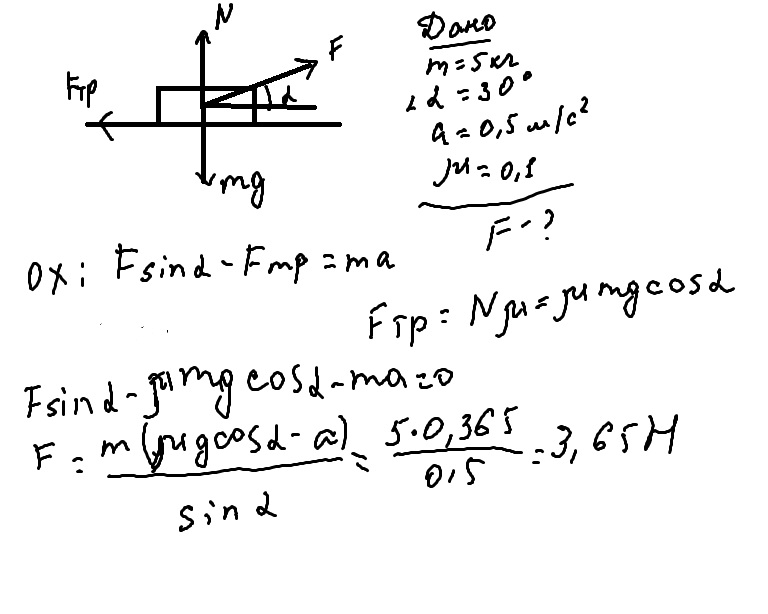 N
F
Fтр
α
mg
Дано
m = 5 кг
∠ α = 30°
a = 0,5 м/с²
μ = 0,1
F - ?
OX: F sin α - Fтр = ma
Fтр = Nμ = μ mg cos α
F sin α - μ mg cos α - ma = 0
F = m(μ g cos α - a) / sin α = 5·0,365 / 0,5 = 3,65 Н